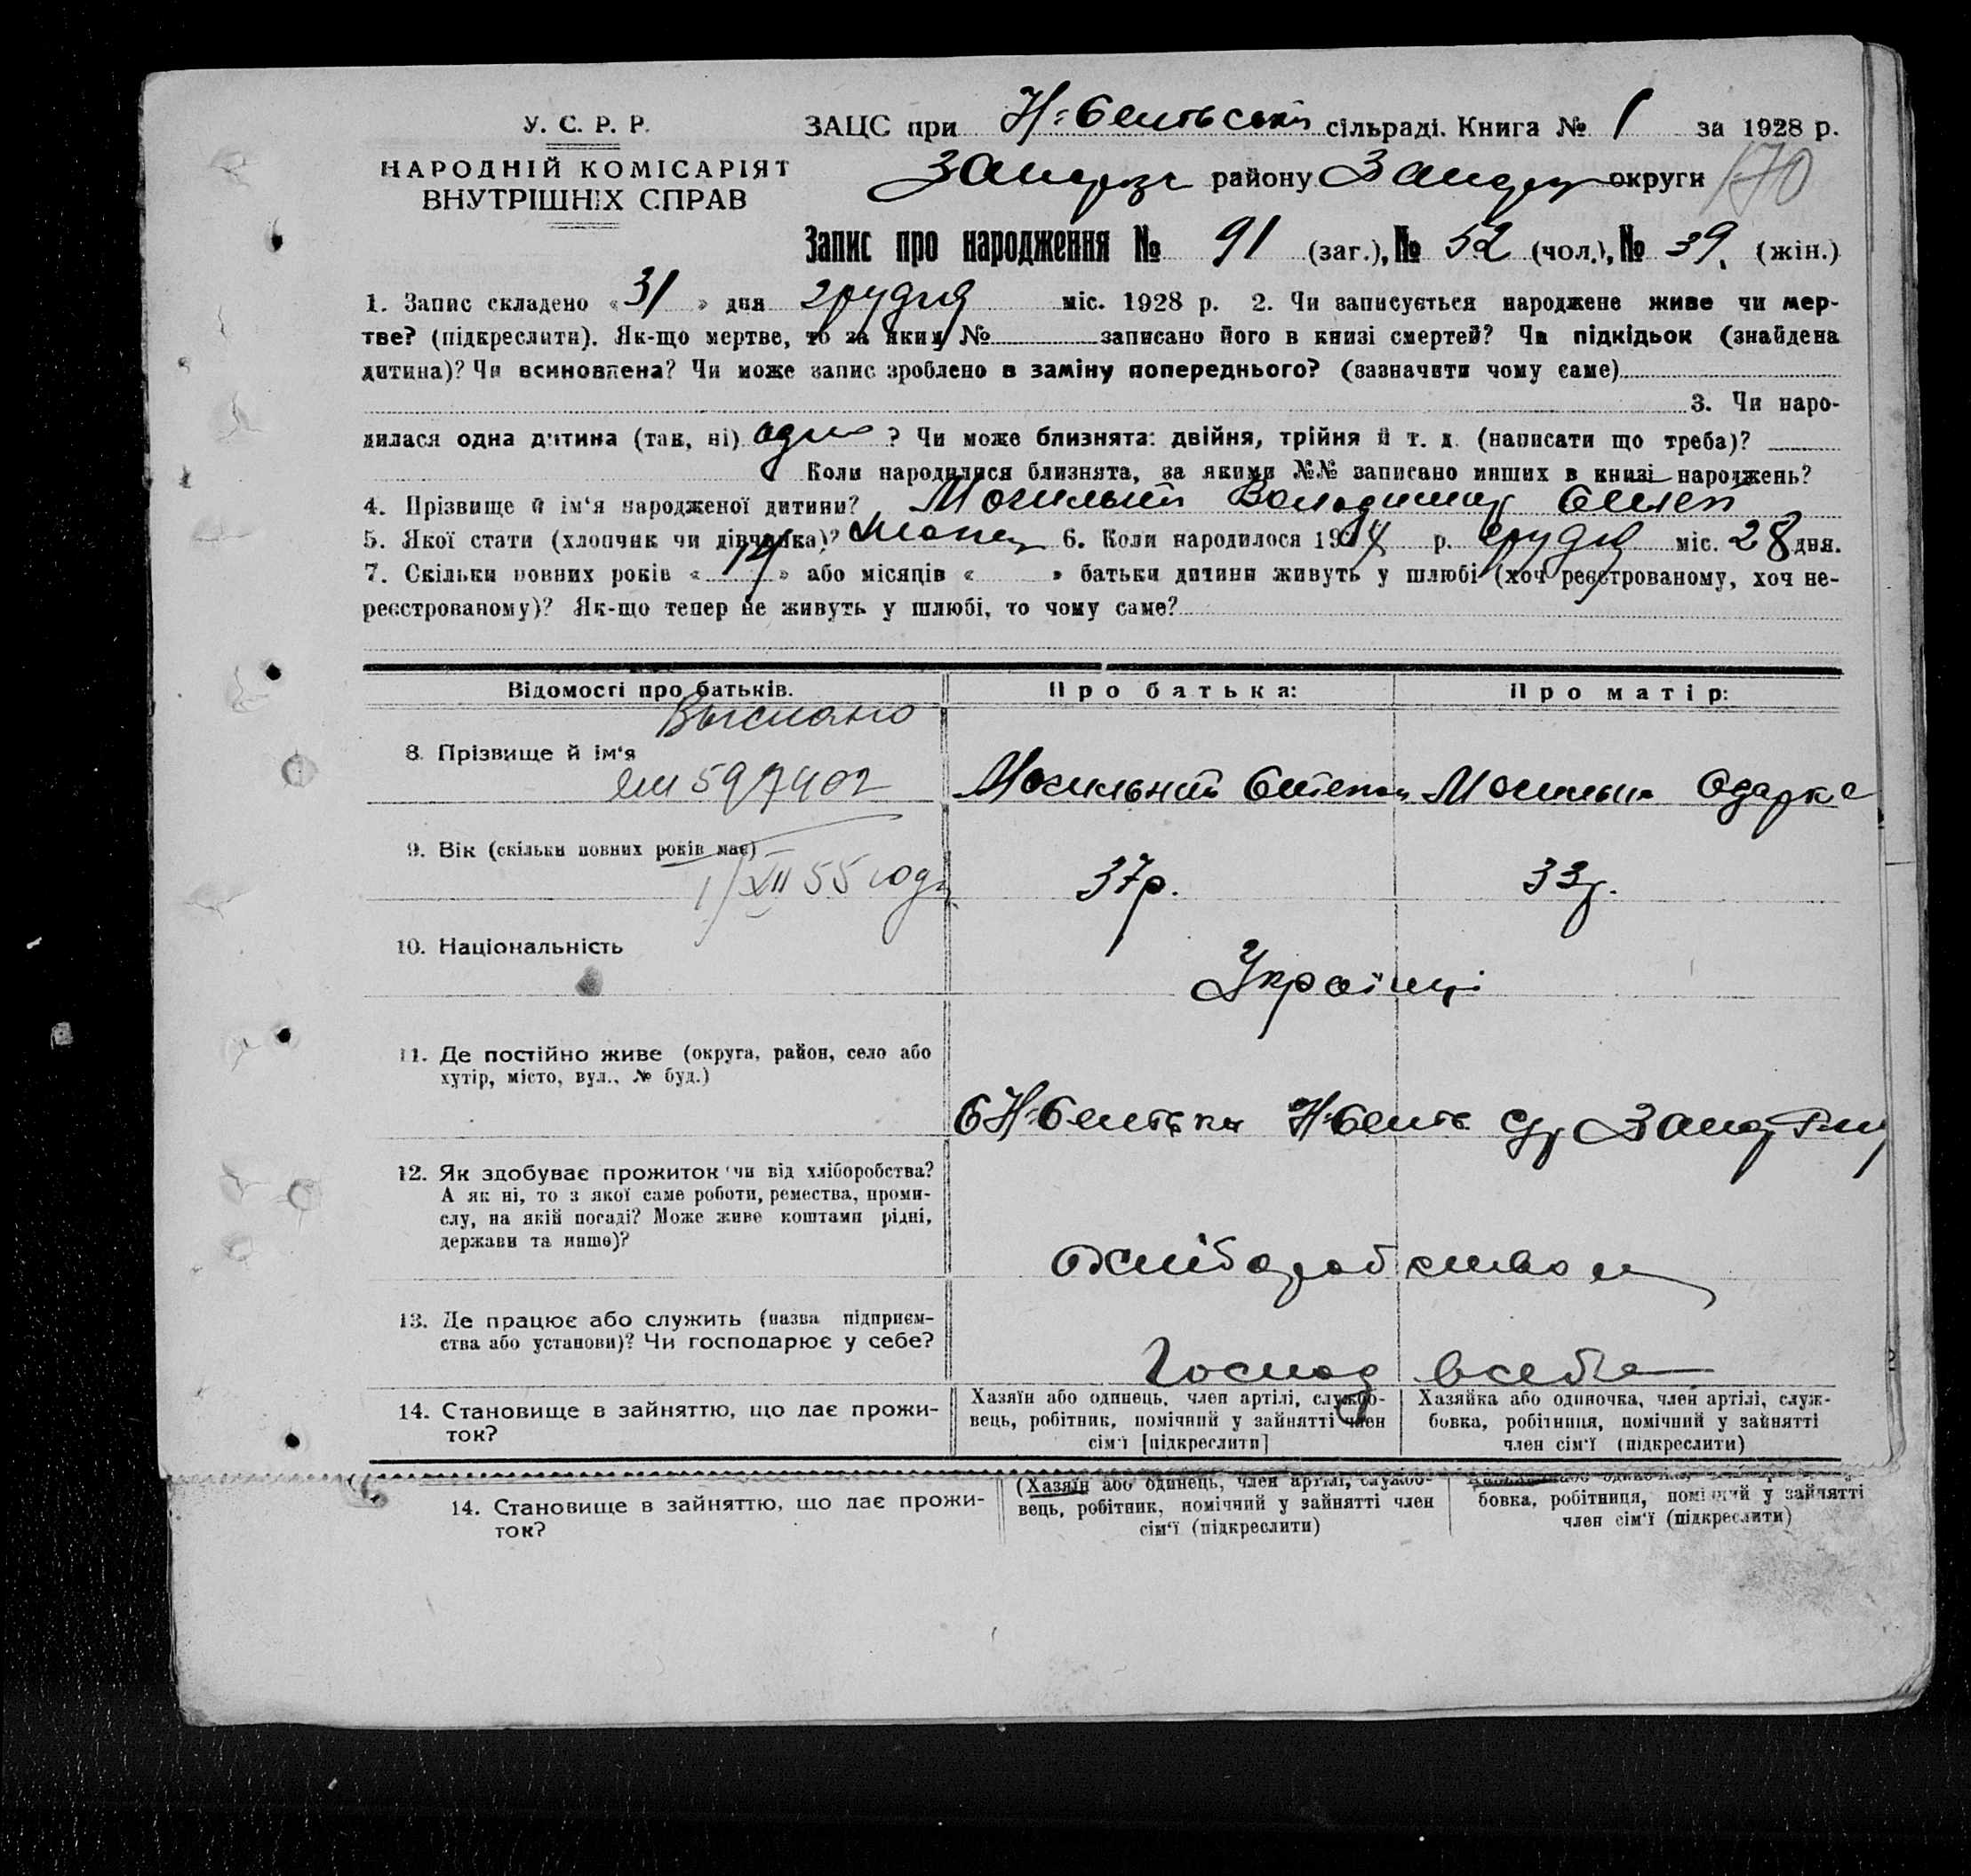 У. С. Р. Р.
НАРОДНІЙ КОМІСАРІЯТ
ВНУТРІШНІХ СПРАВ
ЗАЦС при сільраді. Книга № 1 за 1928 р.
району округи 170
Запис про народження № 91 (заг.), № 52 (чол.), № 39. (жін.)
1. Запис складено «31» дня грудня міс. 1928 р. 2. Чи записується народжене живе чи мер-
тве? (підкреслити). Як-що мертве, то за яким № записано його в книзі смертей? Чи підкідьок (знайдена
дитина)? Чи всиновлена? Чи може запис зроблено в заміну попереднього? (зазначити чому саме)
3. Чи наро-
дилася одна дитина (так, ні) одна ? Чи може близнята: двійня, трійня й т. д. (написати що треба)?
Коли народилися близнята, за якими №№ записано инших в книзі народжень?
4. Прізвище й ім'я народженої дитини? Могильний Володимир Степ
5. Якої стати (хлопчик чи дівчинка)? хлопец 6. Коли народилося 19 р. грудня міс. 28 дня.
7. Скільки повних років «14» або місяців « » батьки дитини живуть у шлюбі (хоч реєстрованому, хоч не-
реєстрованому)? Як-що тепер не живуть у шлюбі, то чому саме?
Відомості про батьків. Про батька: Про матір:
Выслано
8. Прізвище й ім'я Могильний Степан Могильна Одарка
597402
9. Вік (скільки повних років має) 37р. 33р.
1/XII 55 года
10. Національність Українці
11. Де постійно живе (округа, район, село або
хутір, місто, вул., № буд.)
12. Як здобуває прожиток чи від хліборобства?
А як ні, то з якої саме роботи, ремества, проми-
слу, на якій посаді? Може живе коштами рідні,
держави та инше)?
хліборобством
13. Де працює або служить (назва підприєм-
ства або установи)? Чи господарює у себе?
Господ в себе
14. Становище в зайняттю, що дає прожи-
ток?
Хазяїн або одинець, член артілі, службо-
вець, робітник, помічний у зайнятті член
сім'ї [підкреслити]
Хазяйка або одиночка, член артілі, служ-
бовка, робітниця, помічний у зайнятті
член сім'ї (підкреслити)
14. Становище в зайняттю, що дає прожи-
ток?
(Хазяїн або одинець, член артілі, службо-
вець, робітник, помічний у зайнятті член
сім'ї (підкреслити)
бовка, робітниця, помічний у зайнятті
член сім'ї (підкреслити)